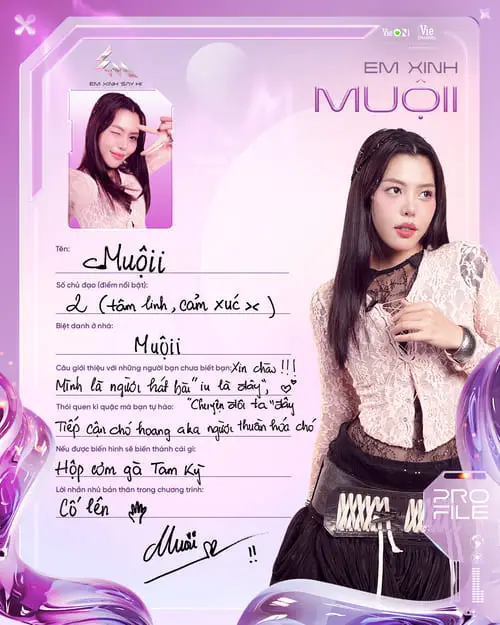 VieON
Vie
CHANNEL
EM XINH "SAY HI"
EM XINH
MUỘII
Tên:
Muộii
Số chủ đạo (điểm nổi bật):
2 (tâm linh, cảm xúc)
Biệt danh ở nhà:
Muộii
Câu giới thiệu với những người bạn chưa biết bạn: Xin chào !!!
Mình là người hát bài "iu là đây",
Thói quen kì quặc mà bạn tự hào: "Chuyện đôi ta" đây
Tiếp cận chó hoang aka người thuần hóa chó
Nếu được biến hình sẽ biến thành cái gì:
Hộp cơm gà Tam Kỳ
Lời nhắn nhủ bản thân trong chương trình:
Cố lên
Muội !!
PRO
FILE